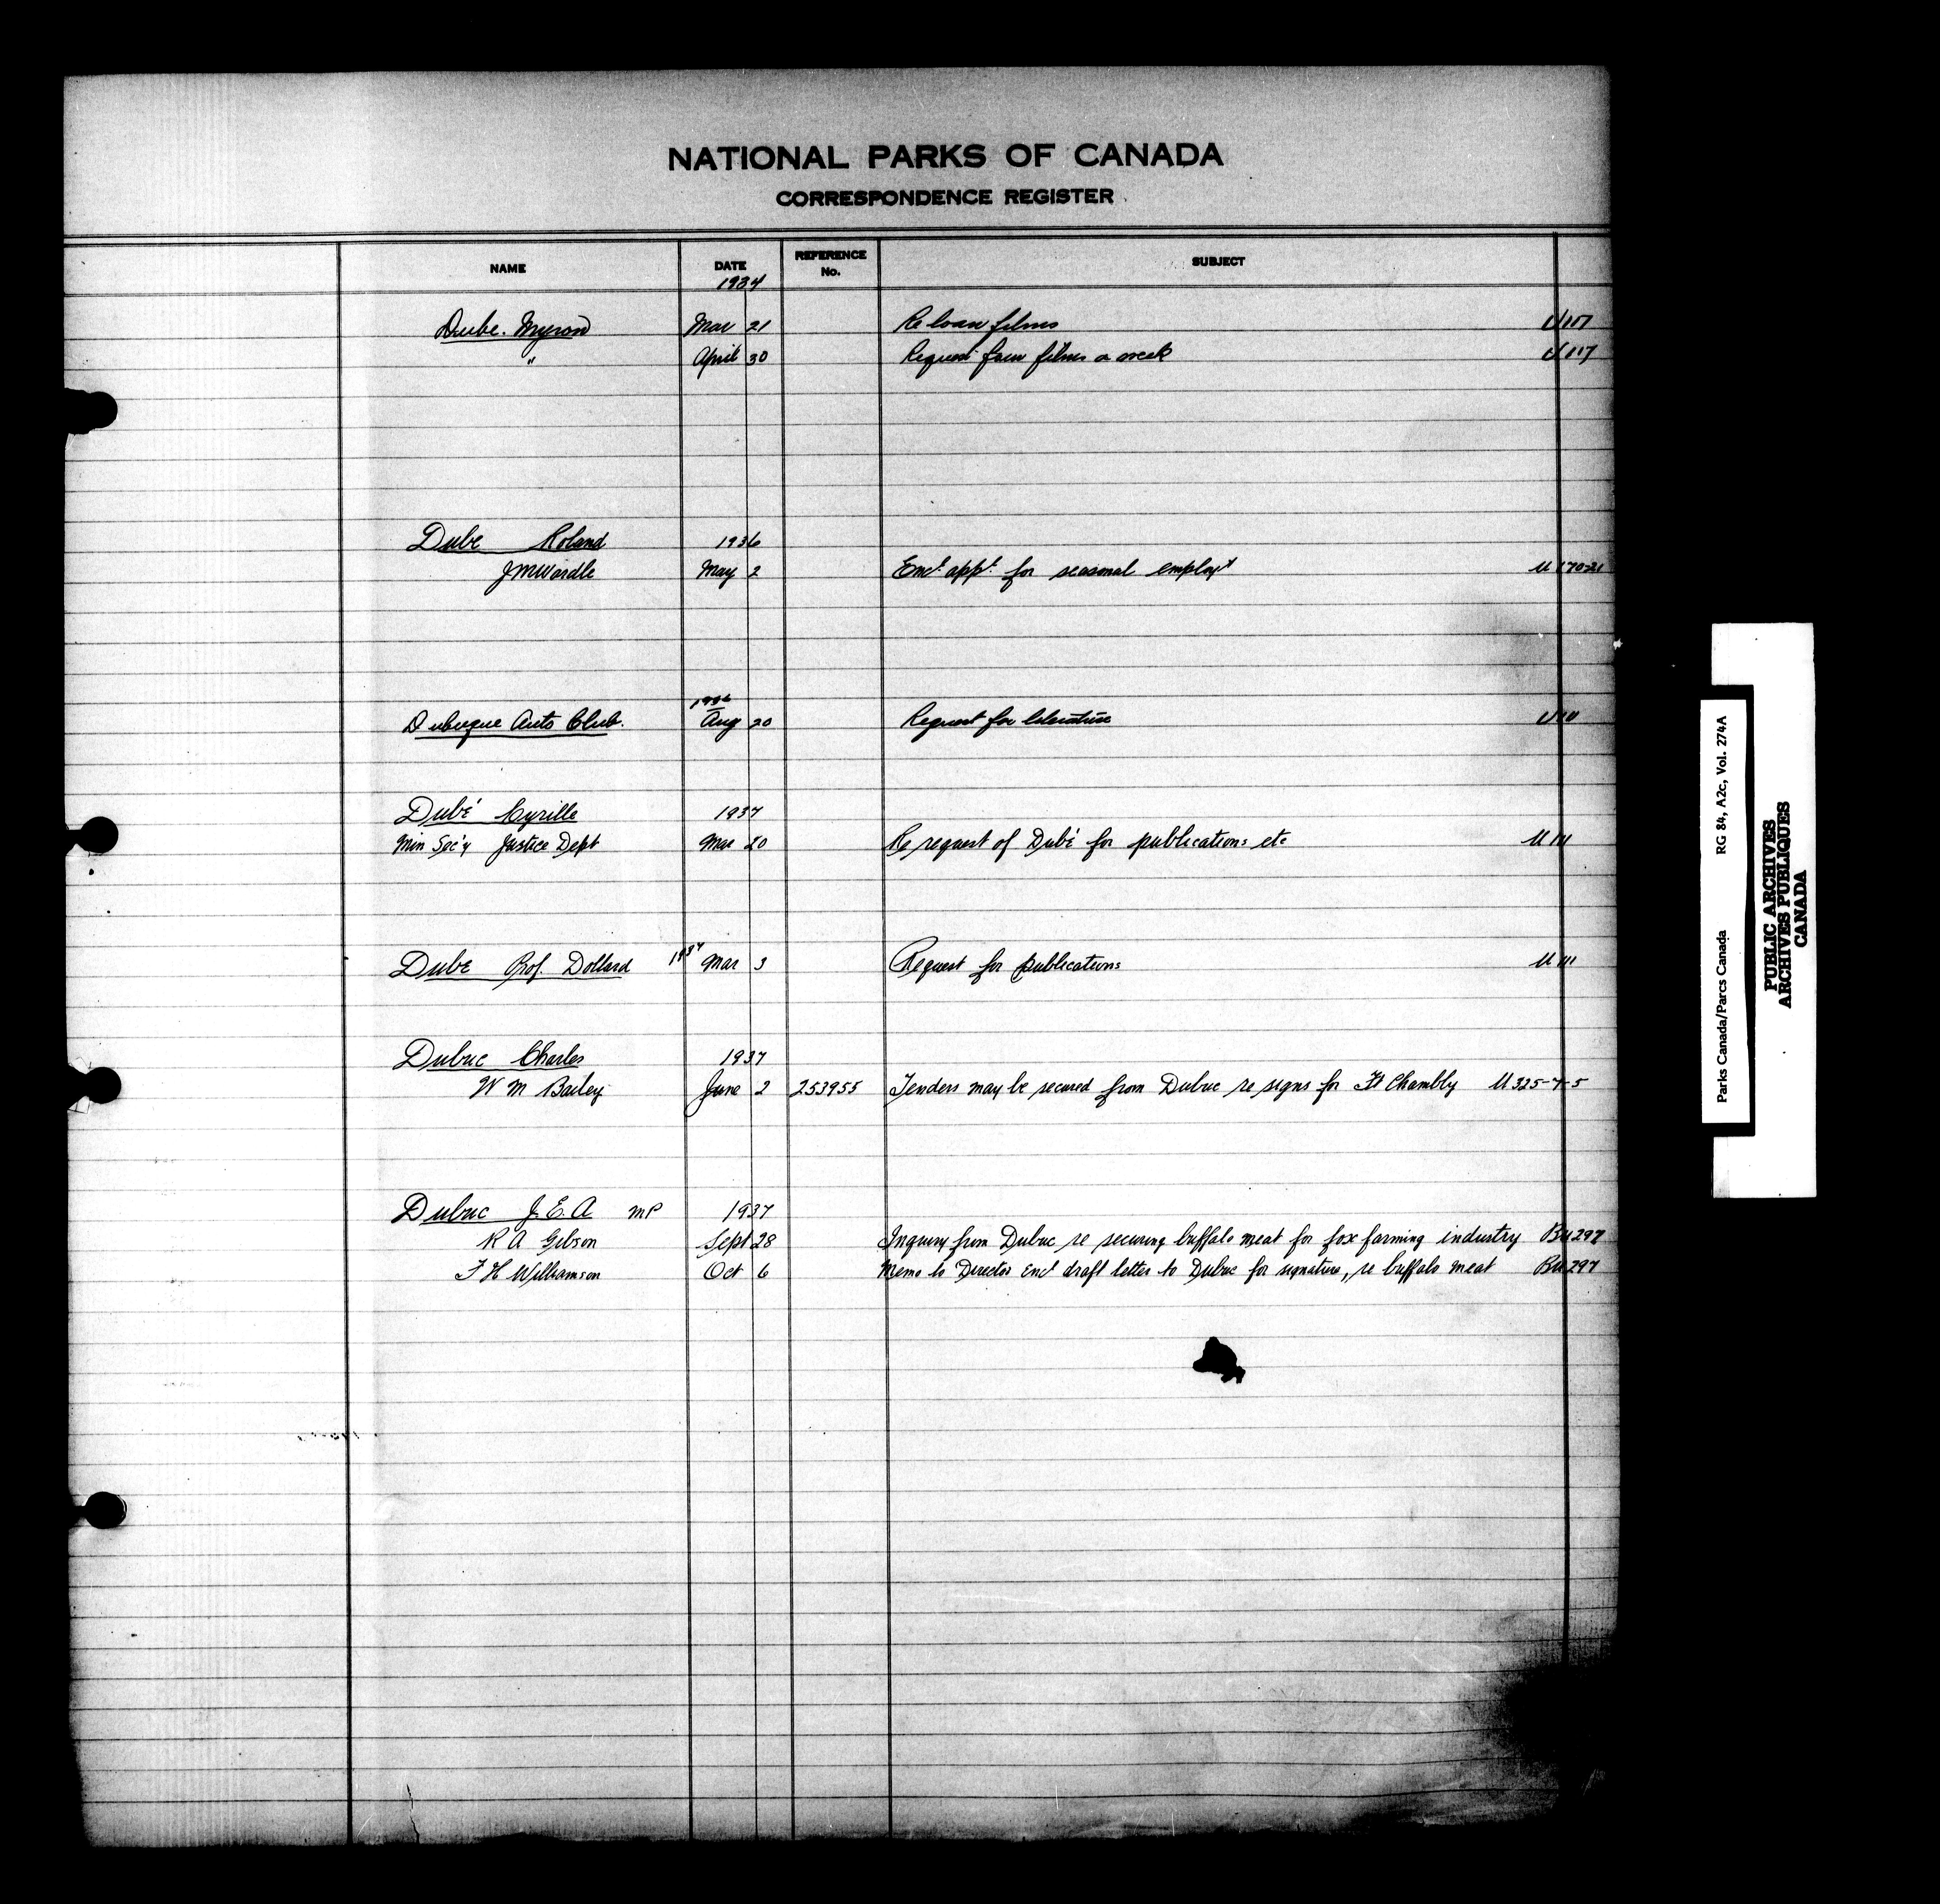 NATIONAL PARKS OF CANADA
CORRESPONDENCE REGISTER
NAME DATE REFERENCE No. SUBJECT
1934
Dube. Myron Mar 21 Re loan films U 117
" April 30 Request four films a week U 117
Dube Roland 1936
J M Wardle May 2 Encl. appt. for seasonal employt U 170-21
1936
Dubuque Auto Club. Aug 20 Request for literature U 111
Dubé Cyrille 1937
Min Sec'y Justice Dept Mar 20 Re request of Dubé for publications etc U 111
Dube Prof. Dollard 1937 Mar 3 Request for publications U 111
Dubuc Charles 1937
W M Bailey June 2 253955 Tenders may be secured from Dubuc re signs for Ft Chambly U 325-7-5
Dubuc J.E.A MP 1937
R A Gibson Sept 28 Inquiry from Dubuc re securing buffalo meat for fox farming industry Bu 297
F H Williamson Oct 6 Memo to Director Encl draft letter to Dubuc for signature, re buffalo meat Bu 297
Parks Canada/Parcs Canada RG 84, A2c, Vol. 274A
PUBLIC ARCHIVES
ARCHIVES PUBLIQUES
CANADA